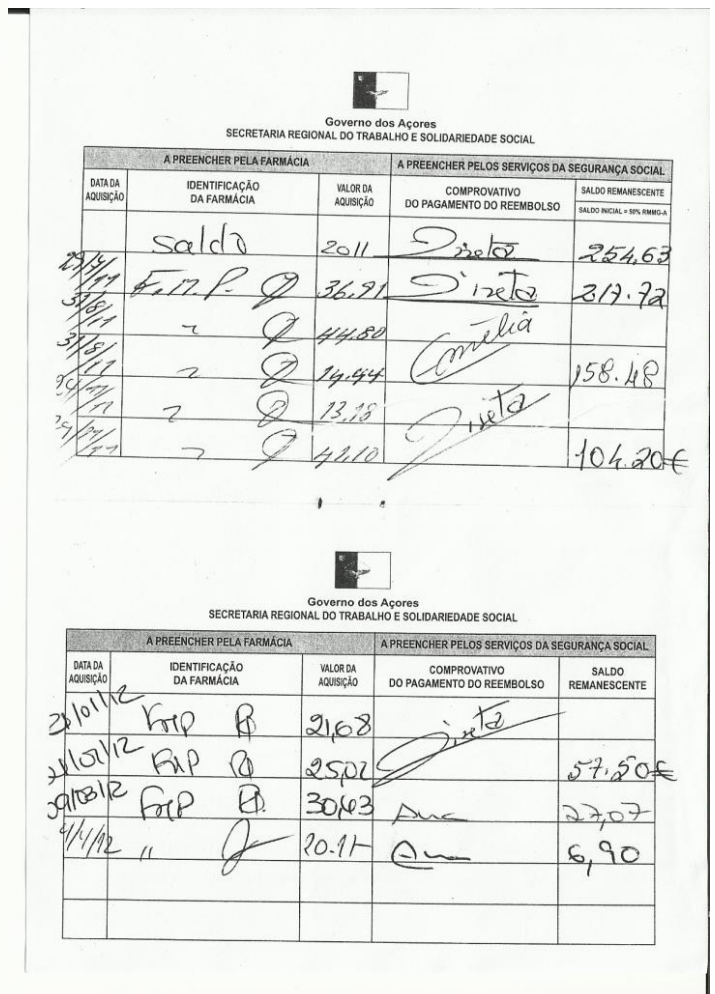 Governo dos Açores
SECRETARIA REGIONAL DO TRABALHO E SOLIDARIEDADE SOCIAL
A PREENCHER PELA FARMÁCIA A PREENCHER PELOS SERVIÇOS DA SEGURANÇA SOCIAL
DATA DA AQUISIÇÃO IDENTIFICAÇÃO DA FARMÁCIA VALOR DA AQUISIÇÃO COMPROVATIVO DO PAGAMENTO DO REEMBOLSO SALDO REMANESCENTE
SALDO INICIAL = 50% RMMG-A
Saldo 2011 254,63
F.M.P. 36.91 217.72
31/8/11 " 44.80 Amélia
31/8/11 " 14.44 158.48
" 13.18
" 41.10 104.20€
Governo dos Açores
SECRETARIA REGIONAL DO TRABALHO E SOLIDARIEDADE SOCIAL
A PREENCHER PELA FARMÁCIA A PREENCHER PELOS SERVIÇOS DA SEGURANÇA SOCIAL
DATA DA AQUISIÇÃO IDENTIFICAÇÃO DA FARMÁCIA VALOR DA AQUISIÇÃO COMPROVATIVO DO PAGAMENTO DO REEMBOLSO SALDO REMANESCENTE
FMP 21,68
FMP 25,02 57.50€
09/03/12 FMP 30,43 Ana 27,07
4/4/12 " 20.17 Ana 6,90